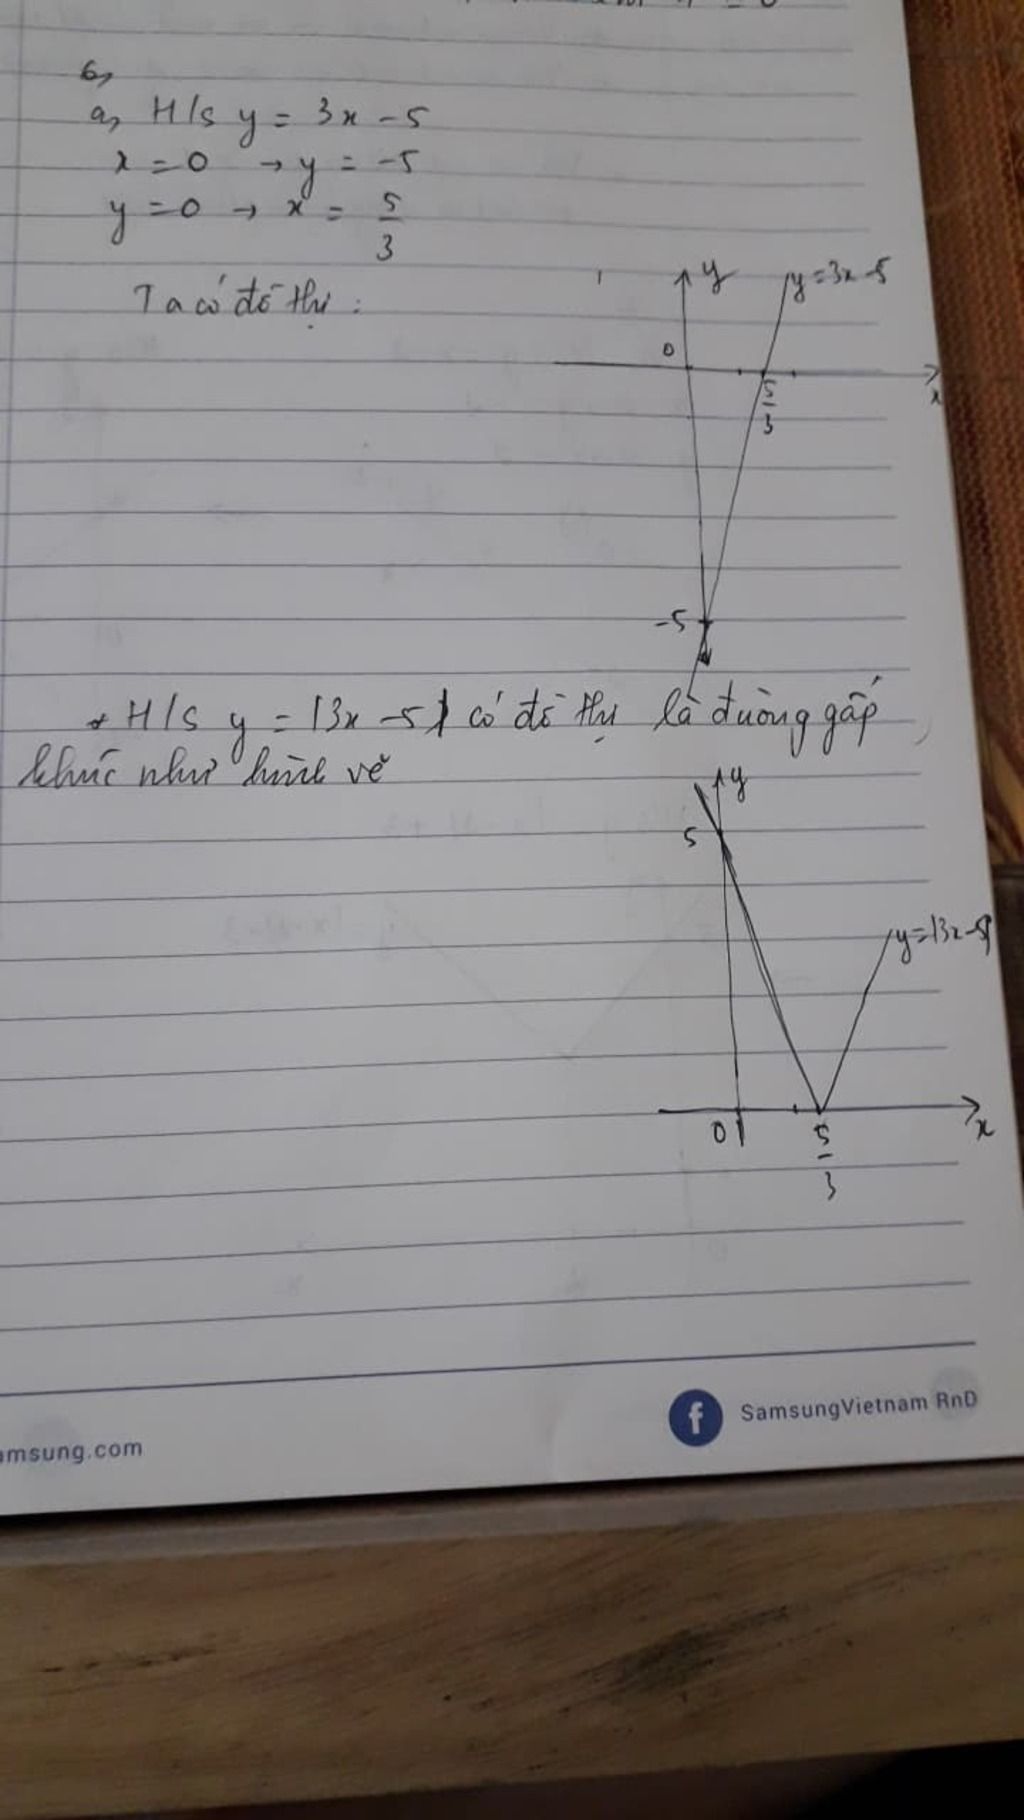 6,
a, H/s y = 3x - 5
x = 0 → y = -5
y = 0 → x = 5/3
Ta có đồ thị :
y
y = 3x - 5
0
5/3
x
-5
* H/s y = |3x - 5| có đồ thị là đường gấp
khúc như hình vẽ
y
5
y = |3x - 5|
0
5/3
x
SamsungVietnam RnD
amsung.com